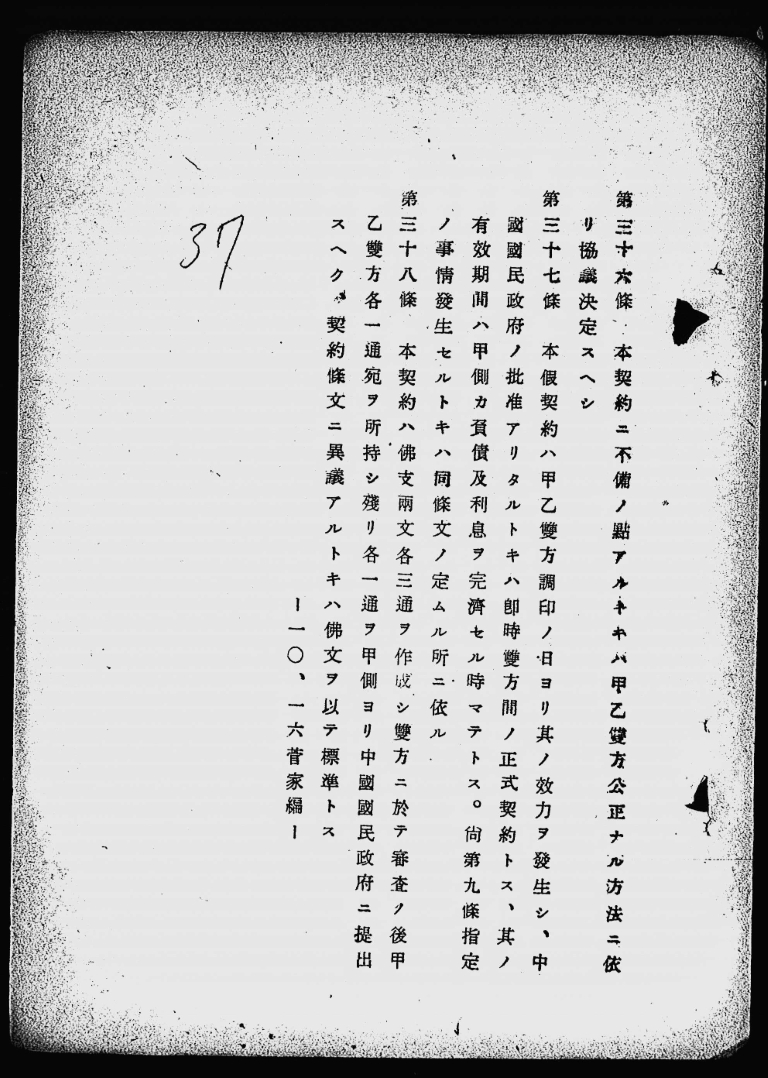 第三十六條　本契約ニ不備ノ點アルトキハ甲乙雙方公正ナル方法ニ依
リ協議決定スヘシ
第三十七條　本假契約ハ甲乙雙方調印ノ日ヨリ其ノ效力ヲ發生シ、中
國國民政府ノ批准アリタルトキハ卽時雙方間ノ正式契約トス、其ノ
有效期間ハ甲側カ負債及利息ヲ完濟セル時マテトス。尙第九條指定
ノ事情發生セルトキハ同條文ノ定ムル所ニ依ル
第三十八條　本契約ハ佛支兩文各三通ヲ作成シ雙方ニ於テ審査ノ後甲
乙雙方各一通宛ヲ所持シ殘リ各一通ヲ甲側ヨリ中國國民政府ニ提出
スヘク、契約條文ニ異議アルトキハ佛文ヲ以テ標準トス
ー一〇、一六菅家編ー
37